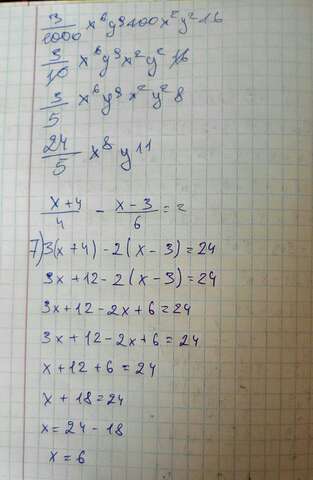 3/1000 x⁶y⁹400x²y²16
3/10 x⁶y⁹x²y² 16
3/5 x⁶y⁹x²y²8
24/5 x⁸y11
x+4/4 - x-3/6 = 2
7)3(x+4)-2(x-3)=24
3x+12-2(x-3)=24
3x+12-2x+6=24
3x+12-2x+6=24
x+12+6=24
x+18=24
x=24-18
x=6